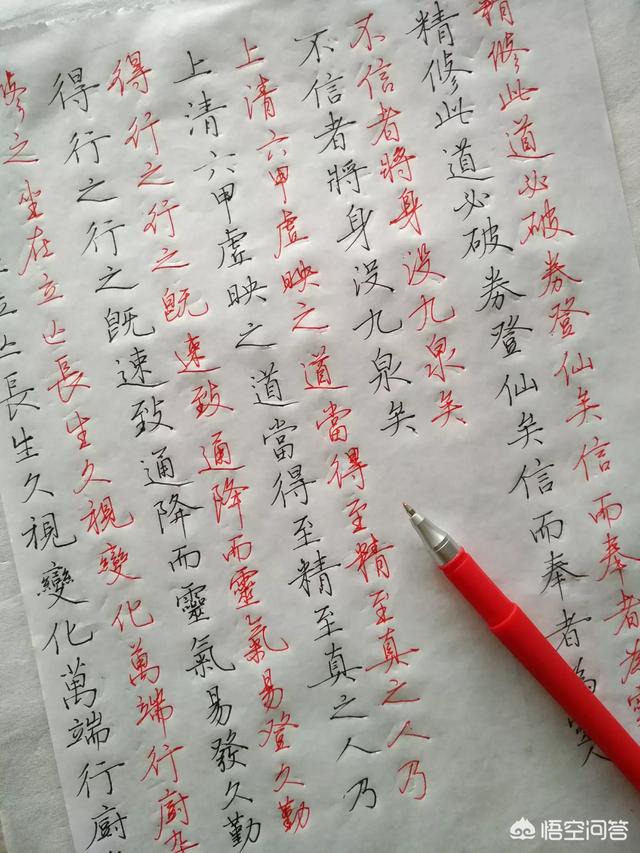 精脩此道必破券登仙矣信而奉者為
精脩此道必破券登仙矣信而奉者為
不信者將身没九泉矣
不信者將身没九泉矣
上清六甲虛映之道當得至精至真之人乃
上清六甲虛映之道當得至精至真之人乃
得行之行之既速致通降而靈氣易登久勤
得行之行之既速致通降而靈氣易發久勤
脩之坐在立亡長生久視變化萬端行廚
立亡長生久視變化萬端行廚
悟空问答